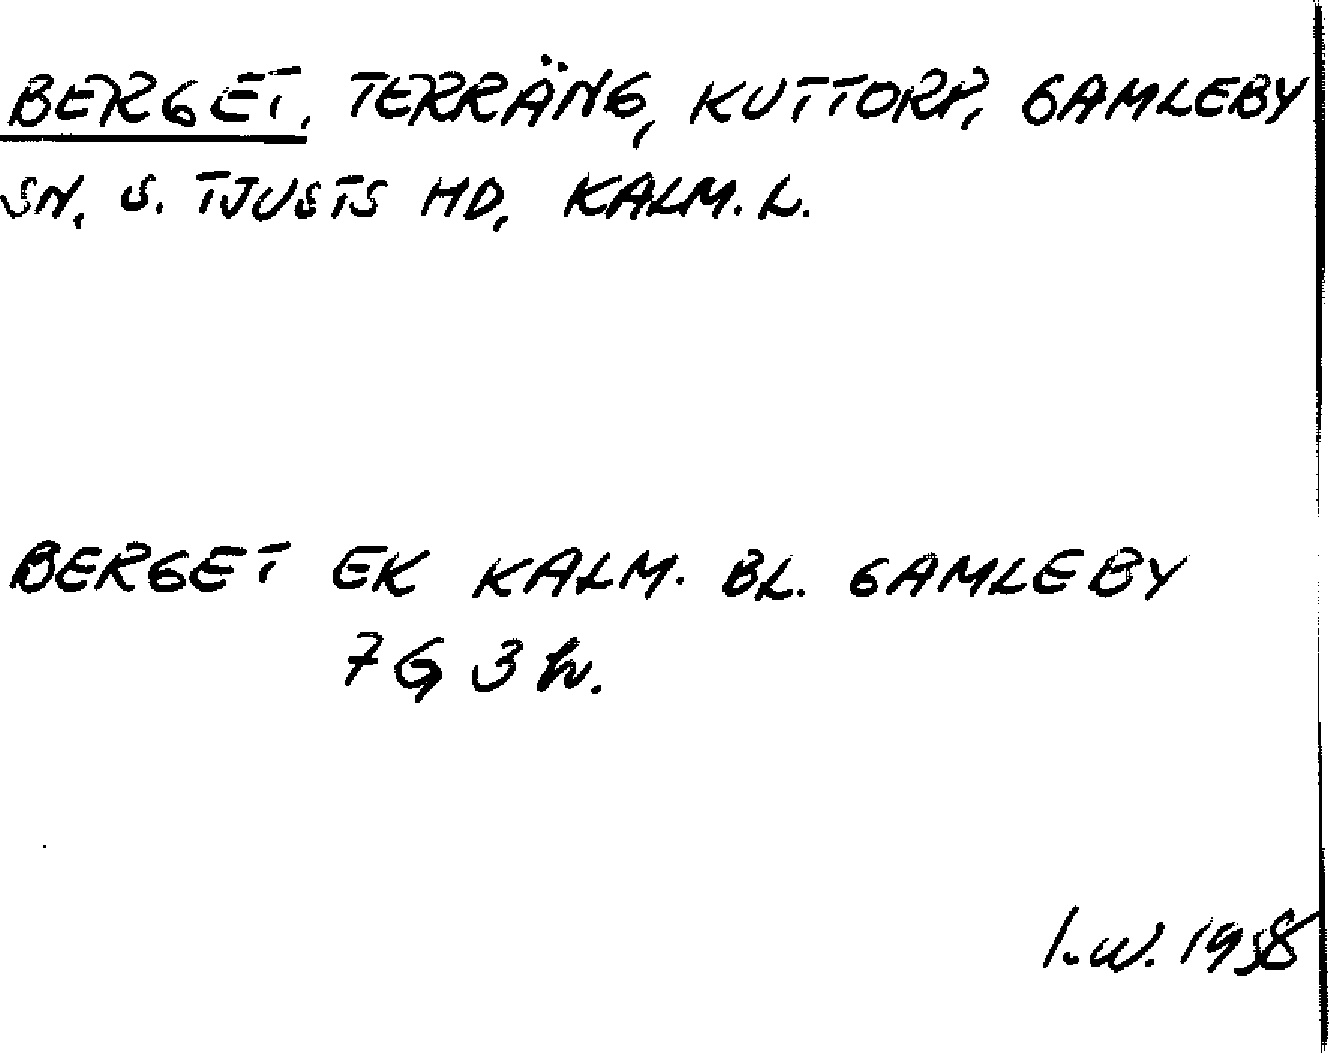 BERGET, TERRÄNG, KUTTORP, GAMLEBY
SN, S. TJUSTS HD, KALM. L.
BERGET EK KALM. BL. GAMLEBY
7G 3h.
I.W. 1958